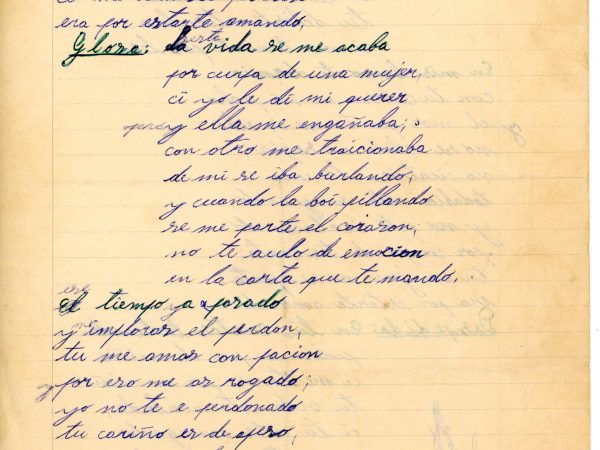 era por estarte amando,
esta
Glosa: La vida se me acaba
por curpa de una mujer,
ci yo le di mi querer
pero y ella me engañaba;
con otro me traicionaba
de mi se iba burlando,
y cuando la boi pillando
se me parte el corazon,
no te aulo de emocion
en la carta que te mando.
ese
el tiempo ya a pasado
y imploras el perdon,
tu me amas con pacion
por eso me as rogado;
yo no te e perdonado
tu cariño es de asero,